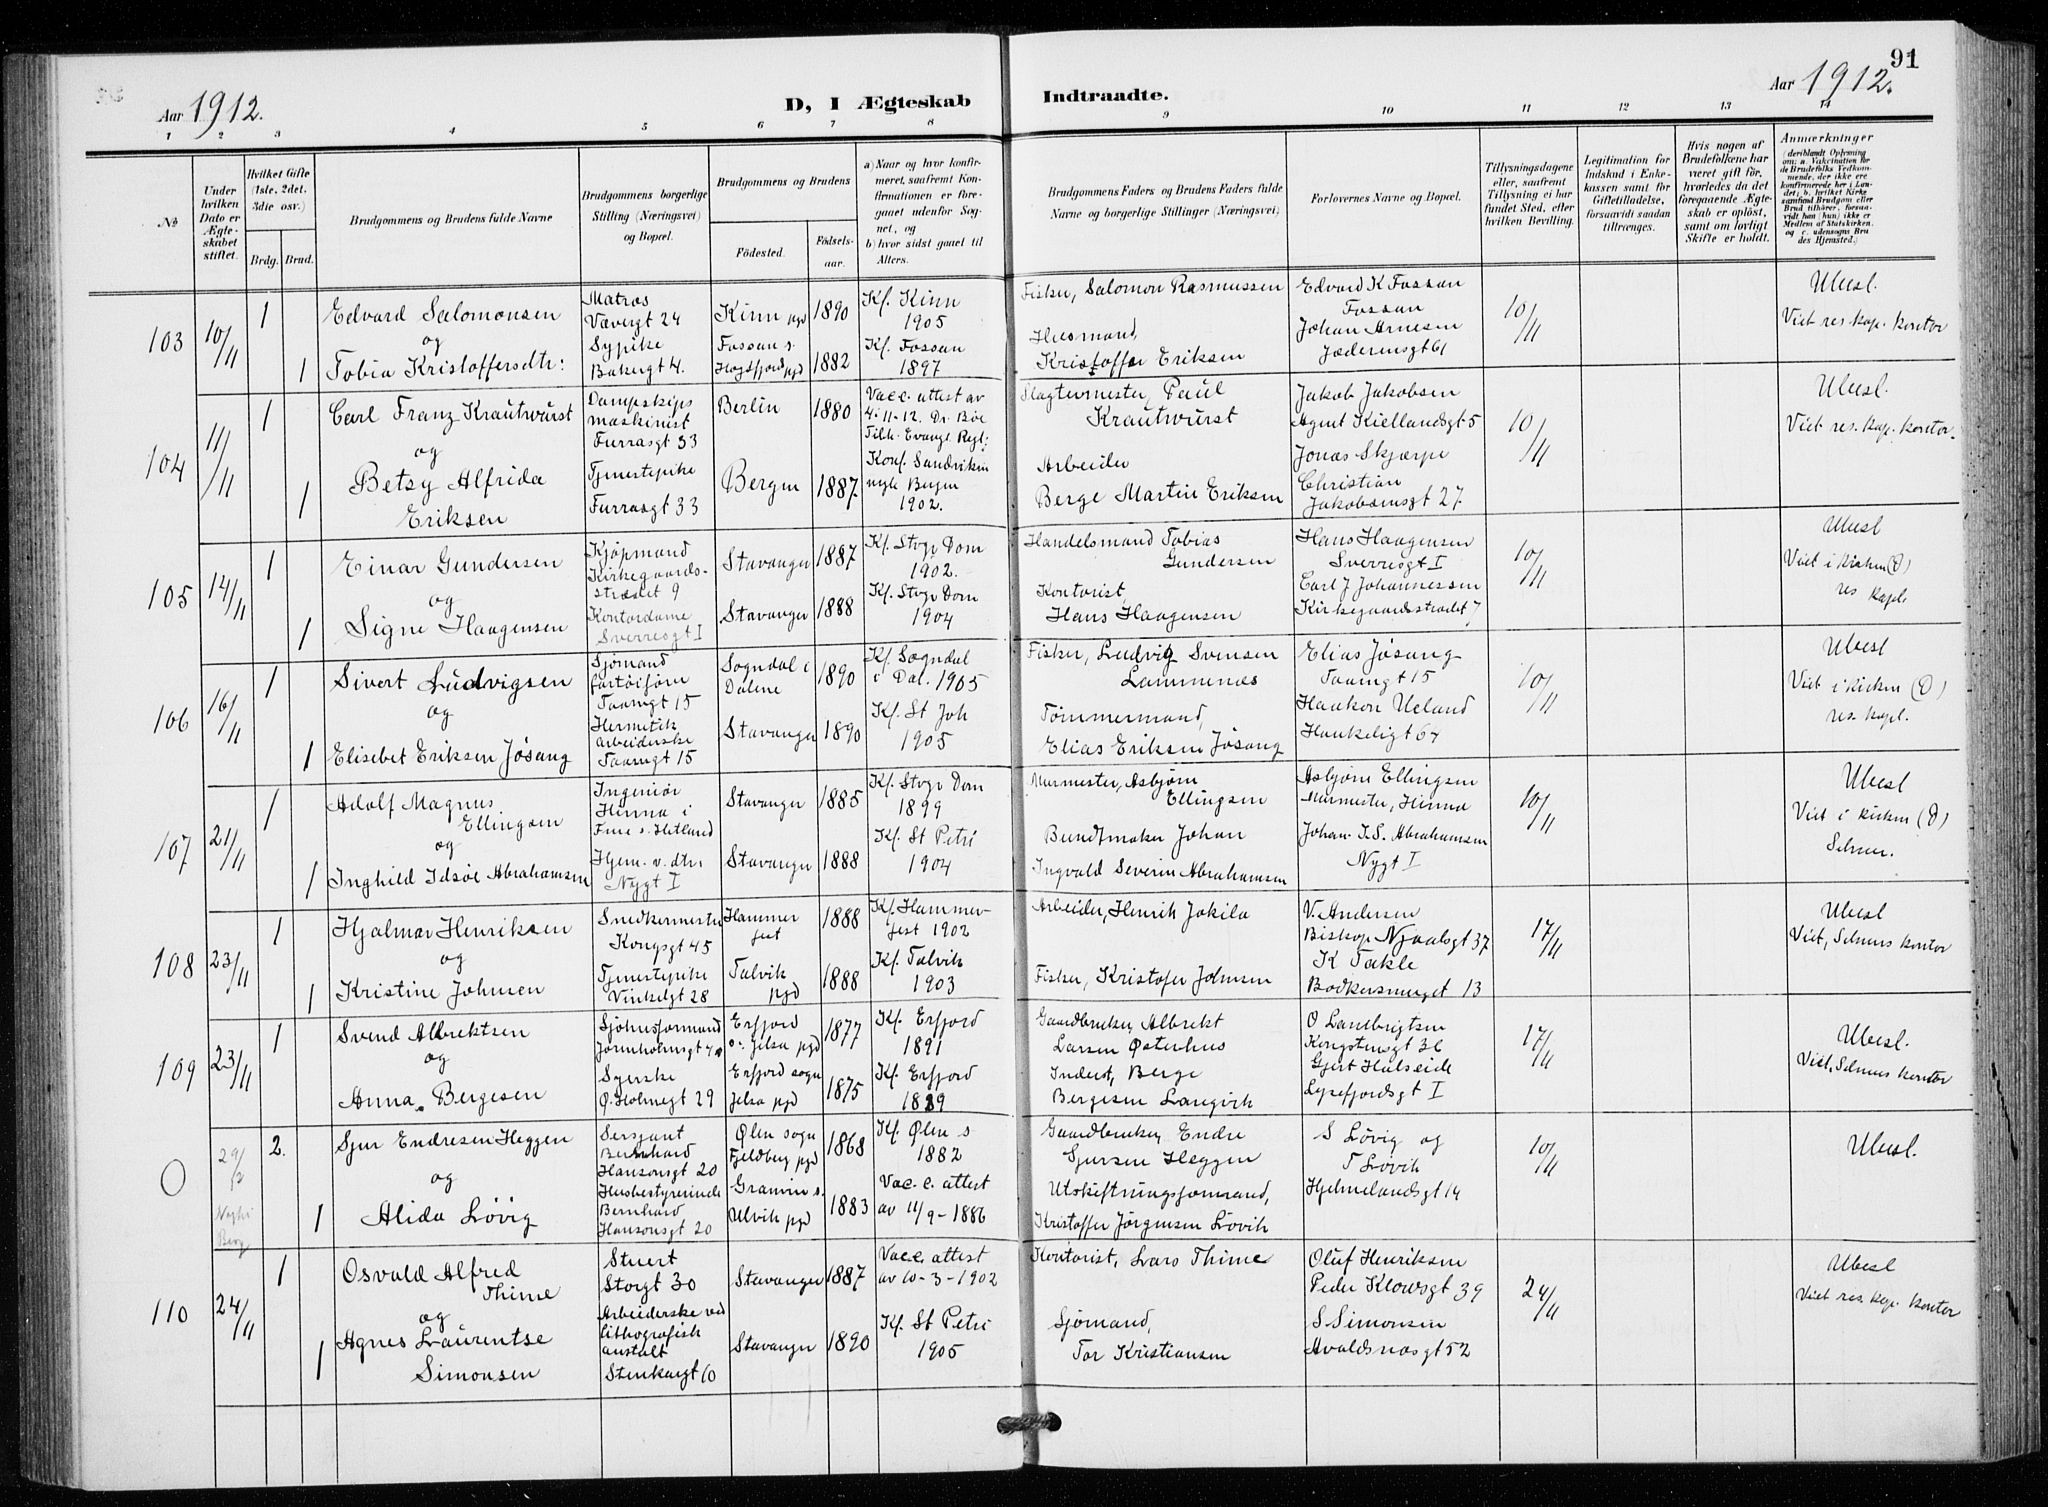 91
Aar 1912.
D, I Ægteskab
Indtraadte.
Aar 1912.
1 2 3 4 5 6 7 8 9 10 11 12 13 14
No
Under hvilken Dato er Ægteskabet stiftet.
Hvilket Gifte (1ste, 2det, 3die osv.)
Brdg. Brud.
Brudgommens og Brudens fulde Navne
Brudgommens borgerlige Stilling (Næringsvei) og Bopæl.
Brudgommens og Brudens
Födested.
Födselsaar.
a) Naar og hvor konfirmeret, saafremt Konfirmationen er foregaaet udenfor Sognet, og
b) hvor sidst gaaet til Alters.
Brudgommens Faders og Brudens Faders fulde Navne og borgerlige Stillinger (Næringsvei)
Forlovernes Navne og Bopæl.
Tillysningsdagene eller, saafremt Tillysning ei har fundet Sted, efter hvilken Bevilling.
Legitimation for Indskud i Enkekassen samt for Giftetilladelse, forsaavidt saadan tiltrænges.
Hvis nogen af Brudefolkene har været gift før, hvorledes da det foregaaende Ægteskab er oplöst, samt om lovligt Skifte er holdt.
Anmærkninger
(deriblandt Oplysning om: a. Vakcination for de Brudefolks Vedkommende, der ikke ere konfirmerede her i Landet; b. hvilket Kirkesamfund Brudgom eller Brud tilhører, forsaavidt han (hun) ikke er Medlem af Statskirken, og c. udensogns Brudes Hjemsted.)
103
10/11
1
Edvard Salomonsen
og
1
Tobia Kristoffersdtr:
Matros
Vævergt 24
Sypike
Bakergt 4.
Kinn pgd
Fossan s.
Høgsfjord pgd
1890
1882
Kf. Kinn
1905
Kf. Fossan
1897
Fisker, Salomon Rasmussen
Husmand,
Kristoffer Eriksen
Edvard K Fossan
Fossan
Johan Arnesen
Jæderensgt 61
10/11
Ubesl.
Viet res. kap. kontor
104
11/11
1
Carl Franz Krautwurst
og
1
Betsy Alfrida
Eriksen
Dampskips
maskinist
Furrasgt 33
Tjenestepike
Furrasgt 33
Berlin
Bergen
1880
1887.
Vacc. attest av
4-11-12. Dr. Bøe
Tilh. Evang. Rel.;
Konf. Sandviken
Bergen
1902.
Slagtermester, Paul
Krautwurst
Arbeider
Berge Martin Eriksen
Jakob Jakobsen
Agent Kiellandsgt 5
Jonas Skjærpe
Christian
Jakobsensgt 27
10/11
Ubesl.
Viet res. kap. kontor.
105
14/11
1
Einar Gundersen
og
1
Signe Haagensen
Kjøpmand
Kirkegaards-
strædet 9
Kontordame
Sverresgt I
Stavanger
Stavanger
1887
1888
Kf. Stvgr Dom
1902.
Kf. Stvgr Dom
1904
Handelsmand Tobias
Gundersen
Kontorist,
Hans Haagensen
Hans Haagensen
Sverresgt I
Carl J Johannessen
Kirkegaardsstrædet 7
10/11
Ubesl
Viet i kirken (D)
res kapl.
106
16/11
1
Sivert Ludvigsen
og
1
Elisebet Eriksen Jøsang
Sjømand
Taarngt 15
Hermetik
arbeiderske
Taarngt 15
Sogndal i
Dalene
Stavanger
1890
1890
Kf. Sogndal
i Dal. 1905
Kf. St Joh
1905
Fisker, Ludvig Svensen
Lammenæs
Tømmermand,
Elias Eriksen Jøsang
Elias Jøsang
Taarngt 15
Haakon Ueland
Haukeligt 67
10/11
Ubesl
Viet i kirken (D)
res. kapl.
107
21/11
1
Adolf Magnus
Ellingsen
og
1
Inghild Idsøe Abrahamsen
Ingeniør
Hinna i
Frue s. Hetland
Hjem. v. dtr
Nygt I
Stavanger
Stavanger
1885
1888
Kf. Stvgr Dom
1899
Kf. St Petri
1904
Murmester, Asbjørn
Ellingsen
Bundtmaker Johan
Ingvald Severin Abrahamsen
Asbjørn Ellingsen
Murmester, Hinna
Johan I.S. Abrahamsen
Nygt I
10/11
Ubesl
Viet i kirken (D)
Selmer.
108
23/11
1
Hjalmar Henriksen
og
1
Kristine Johnsen
Snedkermester
Kongsgt 45
Tjenestepike
Vinkelgt 28
Hammer
fest
Talvik
pgd
1888
1888
Kf. Hammer-
fest 1902
Kf. Talvik
1903
Arbeider, Henrik Jokila
Fisker, Kristofer Johnsen
V. Andersen
Biskop Njaalsgt 37
K Takle
Bødkersmuget 13
17/11
Ubesl
Viet, Selmers kontor
109
23/11
1
Svend Albrektsen
og
1
Anna Bergesen
Sjøhusformand
Jørnholmsgt 4a
Syerske
Ø. Holmegt 29
Erfjord
s. Jelsa pgd
Erfjord sogn
Jelsa pgd
1877
1875
Kf. Erfjord
1891
Kf. Erfjord
1889
Gaardbruker, Albrekt
Larsen Østerhus
Inderst, Berge
Bergesen Langvik
O Lambrigtsen
Kongstensgt 36
Gjert Halseide
Lysefjordsgt I
17/11
Ubesl.
Viet, Selmers kontor
O
29/12
Berg
2.
Sjur Endresen Heggen
og
1
Alida Løvig
Sersjant
Bernhard
Hansensgt 20
Husbestyrerinde
Bernhard
Hansensgt 20
Ølen sogn
Fjeldberg pgd
Granvin s.
Ulvik pgd
1868
1883
Kf. Ølen s
1882
Vac. c. attest
av 11/9-1886
Gaardbruker, Endre
Sjursen Heggen
Utskiftningsformand,
Kristoffer Jørgensen Løvik
S Løvig og
T Løvik
Hjelmelandsgt 14
10/11
Ubesl.
110
24/11
1
Osvald Alfred
Thime
og
1
Agnes Laurentse
Simonsen
Stuert
Storgt 30
Arbeiderske ved
lithografisk
anstalt
Stenkargt 10
Stavanger
Stavanger
1887
1890
Vacc. attest
av 10-3-1902
Kf. St Petri
1905
Kontorist, Lars Thime
Sjømand,
Tor Kristiansen
Oluf Henriksen
Peder Klowsgt 39
S Simonsen
Avaldsnæsgt 52
24/11
Ubesl
Viet res. kap. kontor